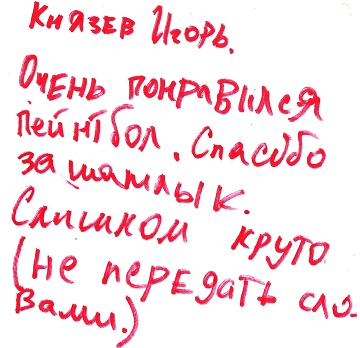 Князев Игорь.
Очень понравился
пейнтбол. Спасибо
за шашлык.
Слишком круто
(не передать сло-
вами.)